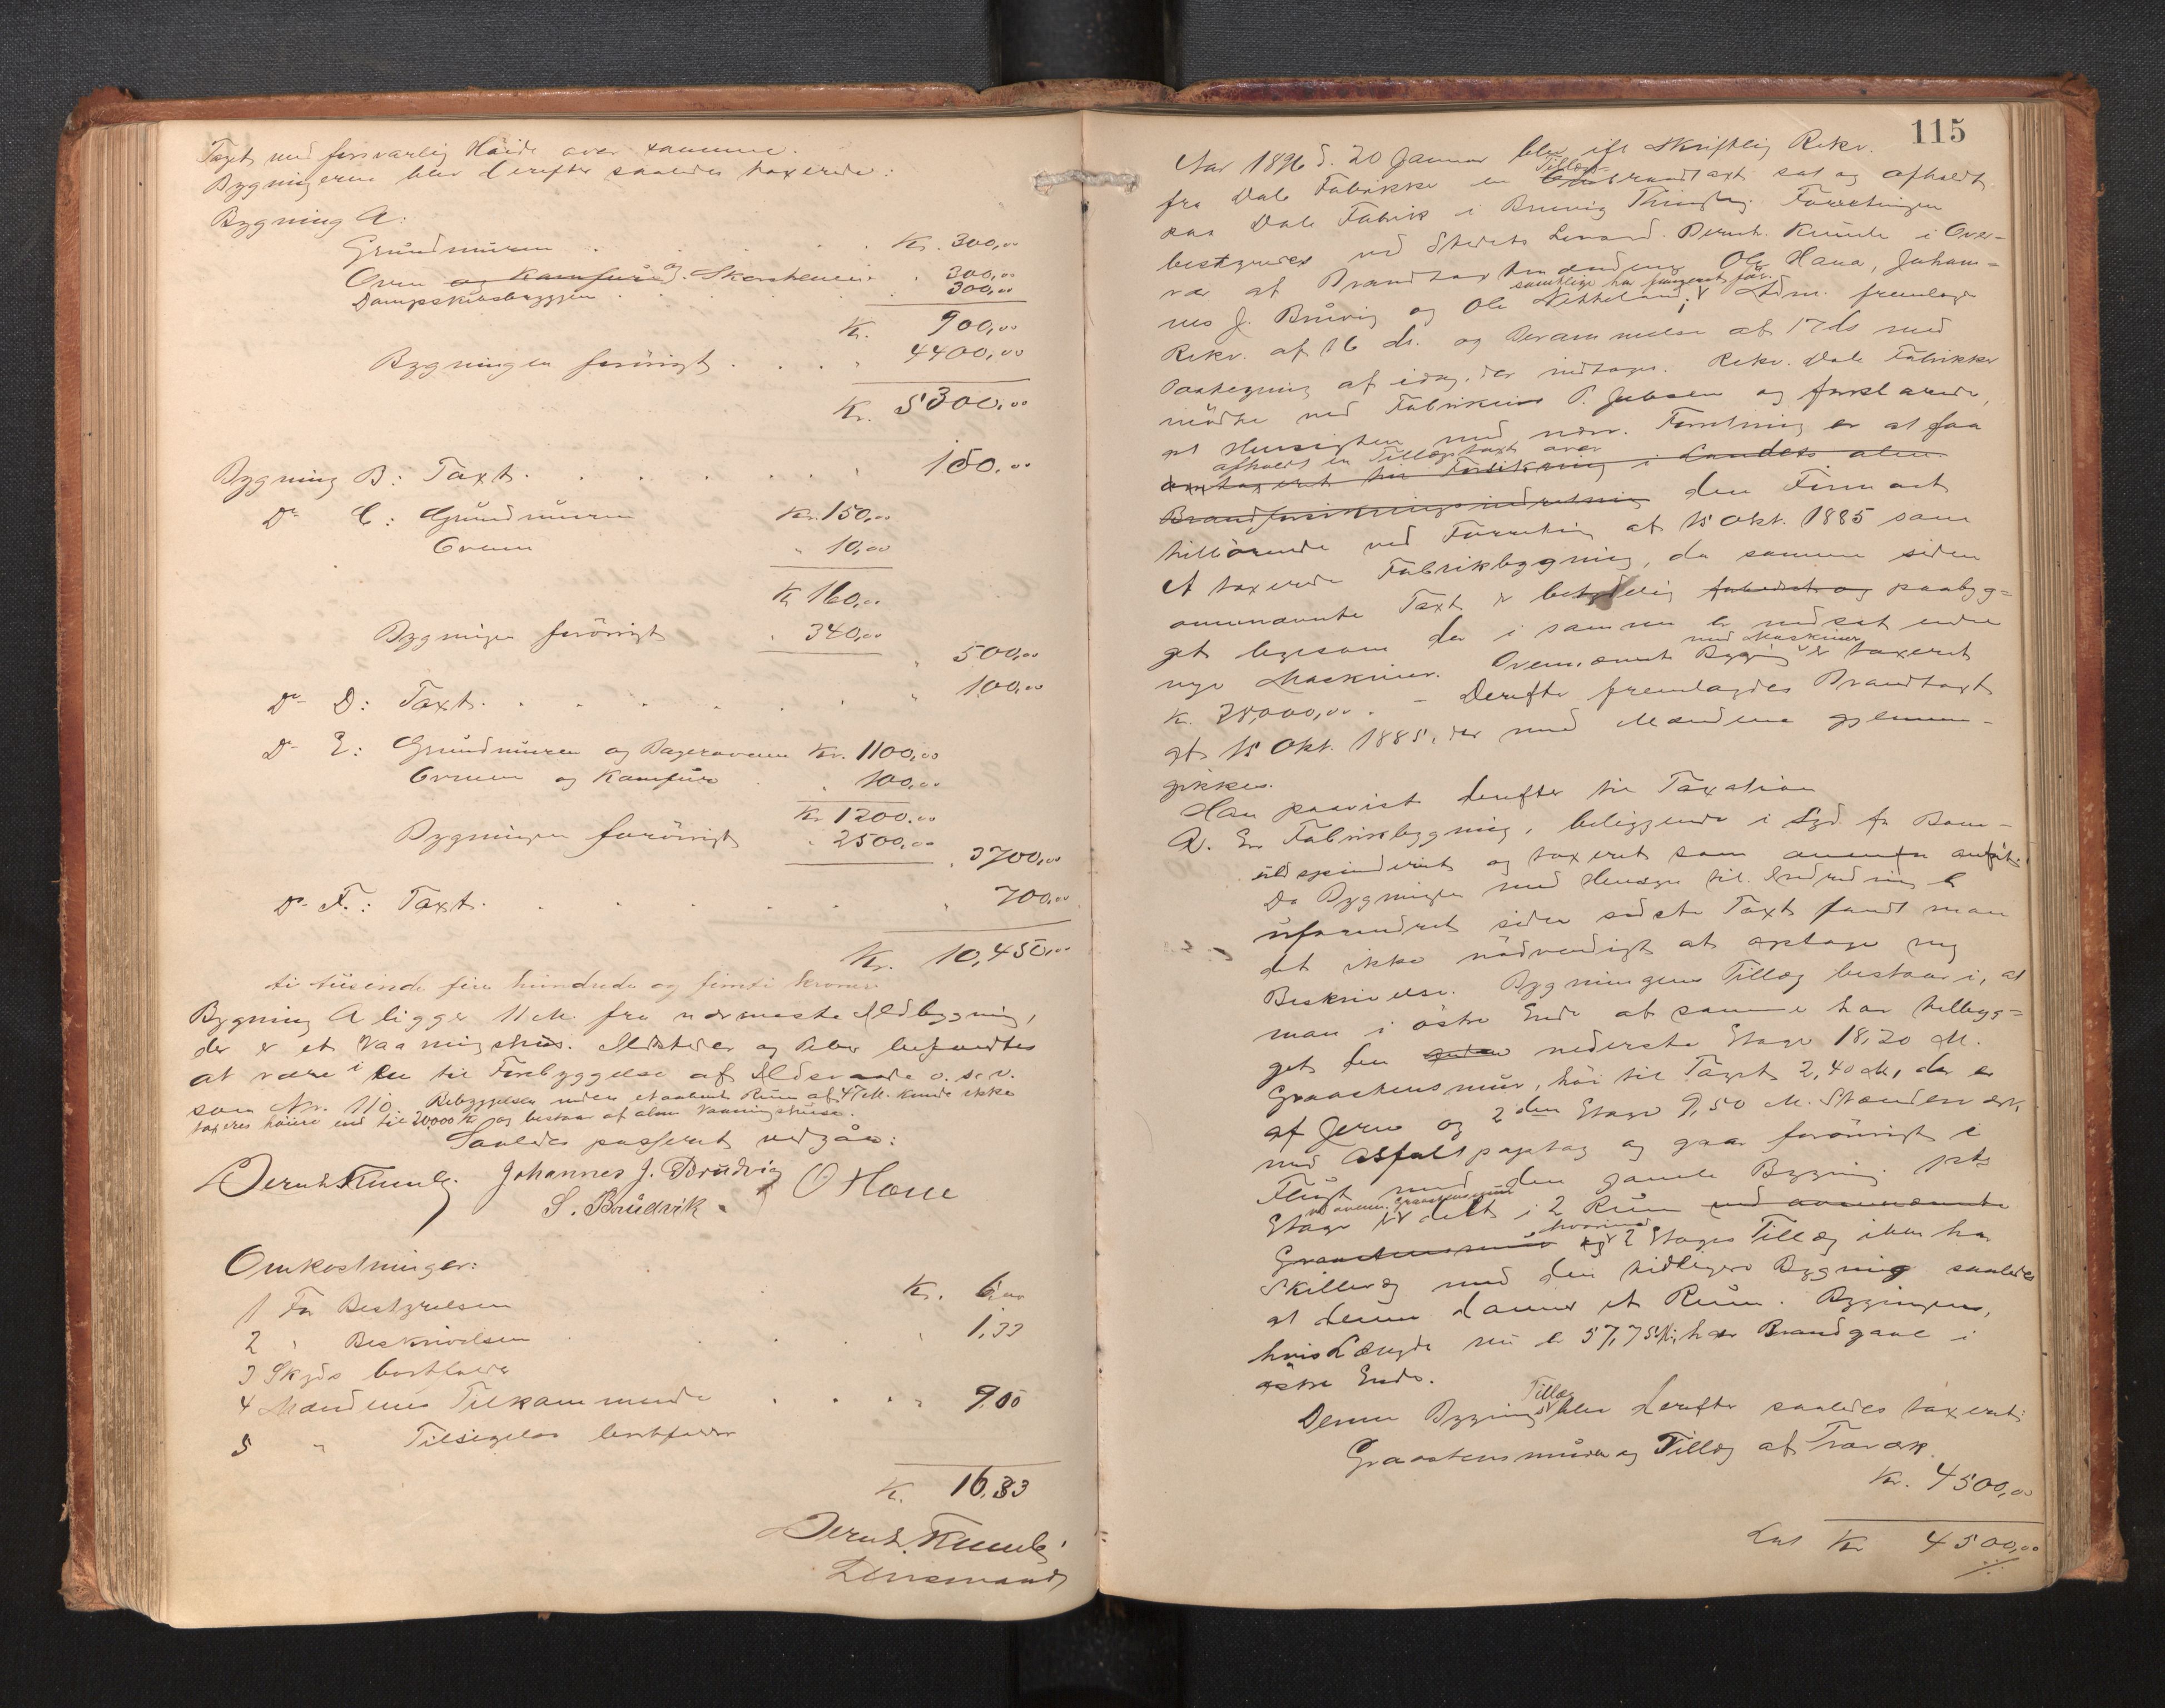 Taget med forsvarlig Høide over samme.
Bygningerne blev derefter saaledes taxerede:
Bygning A:
Grundmuren . . . . Kr. 300,00
Oven og Komfur og Skorstenen . " 300,00
Dampskibsbryggen . . . . 300,00
Kr. 900,00
Bygningen forøvrigt . . . " 4400,00
Kr. 5300,00
Bygning B: Taxt . . . . . . " 150,00
Do C: Grundmuren Kr. 150,00
Ovnen " 10,00
Kr 160,00
Bygningen forøvrigt " 340,00
" 500,00
Do D: Taxt . . . . . . . " 100,00
Do E: Grundmuren og Bagerovnen Kr. 1100,00
Ovnen og Komfur . " 100,00
Kr 1200,00
Bygningen forøvrigt " 2500,00
" 3700,00
Do F.: Taxt . . . . . . " 700,00
Kr. 10,450,00
ti tusinde fire hundrede og femti Kroner
Bygning A ligger 11 M. fra nærmeste Ildbygning,
der er et Vaaningshus. Ildsteder og Piber befandtes
at være i Lu til Forebyggelse af Ildsvaade o. s. v.
som No. 110. Bebyggelsen uden et aabent Rum af 47 M. kunde ikke
taxeres høiere end til 20000 Kr og bestaar af alm Vaaningshuse.
Saaledes passeret vedgaar:
Bernt Kunle. Johannes J. Brudvig O Hane
S. Brudvik.
Omkostninger:
1 For Bestyrelsen Kr. 6,00
2 " Beskrivelsen . . . . " 1,33
3 Skyds bortfalder
4 Mændenes Tilkommende . . . " 9,00
5 " Tilsigelse bortfalder
Kr. 16,33
Bernt. Kunle
Lensmand
115
Aar 1896 d. 20 Januar blev ifl skriftlig Rekv.
fra Dale Fabrikker en Tillægs Brandtaxt sat og afholdt
paa Dale Fabrik i Bruvig Thinglag. Forretningen
bestyredes ved Stedets Lensmd. Bernt. Kunle i Over-
vær af Brandtaxtmændene Ole Hana, Johan-
nes J. Bruvig og Ole Nekkeland; samtlige har fungeret før. Adm. fremlagde
Rekv. af 16 ds. og Berammelse af 17 ds med
Paategning af idag, der indtages. Rekv. Dale Fabrikker
mødte ved Fabrikeier P. Jebsen og forklarede,
at Hensigten med nærv. Forretning er at faa
afholdt en Tillægstaxt over
taxeret til Forsikring i Landets alm.
Brandforsikringsindretning den Firmaet
tilhørende ved Forretning af 15 Okt. 1885 som
A taxerede Fabrikbygning, da samme siden
ovennævnte Taxt er betydelig forbedret og paabyg-
get ligesom der i samme er indsat endre
nye Maskiner. Ovennævnte Bygning med Maskiner er taxeret
Kr. 28,000,00. - Derefter fremlagdes Brandtaxt
af 15 Okt. 1885, der med Mændene gjennem-
gikkes.
Man paavist derefter til Taxation
A. En Fabrikbygning, beliggende i Syd for Bom-
uldspinderiet og taxeret som ovenfor anført.
Da Bygningen med Hensyn til Indredning er
uforandret siden sidste Taxt fandt man
det ikke nødvendigt at optage ny
Beskrivelse. Bygningens Tillæg bestaar i, at
man i østre Ende af samme har tilbyg-
get den nederste Etage 18,20 M.
Graastensmur, høi til Taget 2,40 M, der er
af Jern og 2den Etage 9,50 M. Stænderværk
med Asfaltpaptag og gaar forøvrigt i
Flugt med den gamle Bygning. 1ste
Etage er ved ovenn. graastensmur delt i 2 Rum ved ovennævnte
Graastensmur og hvorimod 2 Etages Tillæg ikke har
Skillevæg med den tidligere Bygning saaledes
at denne danner et Rum. Bygningen,
hvis Længde nu er 57,75 M, har Brandgavl i
østre Ende.
Denne Bygnings Tillæg blev derefter saaledes taxeret:
Graastensmuren og Tillæg af Træværk.
Kr. 4500,00
Lat Kr 4500,00